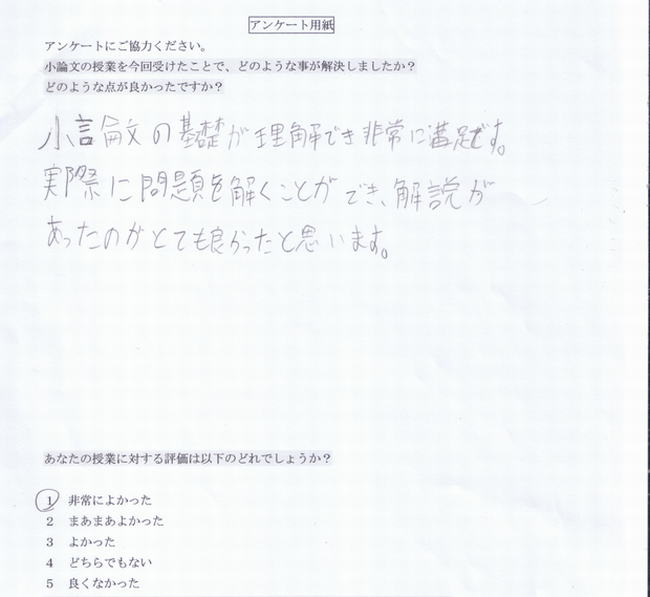 アンケート用紙
アンケートにご協力ください。
小論文の授業を今回受けたことで、どのような事が解決しましたか？
どのような点が良かったですか？
小論文の基礎が理解でき非常に満足です。
実際に問題を解くことができ、解説が
あったのがとても良かったと思います。
あなたの授業に対する評価は以下のどれでしょうか？
1 非常によかった
2 まあまあよかった
3 よかった
4 どちらでもない
5 良くなかった